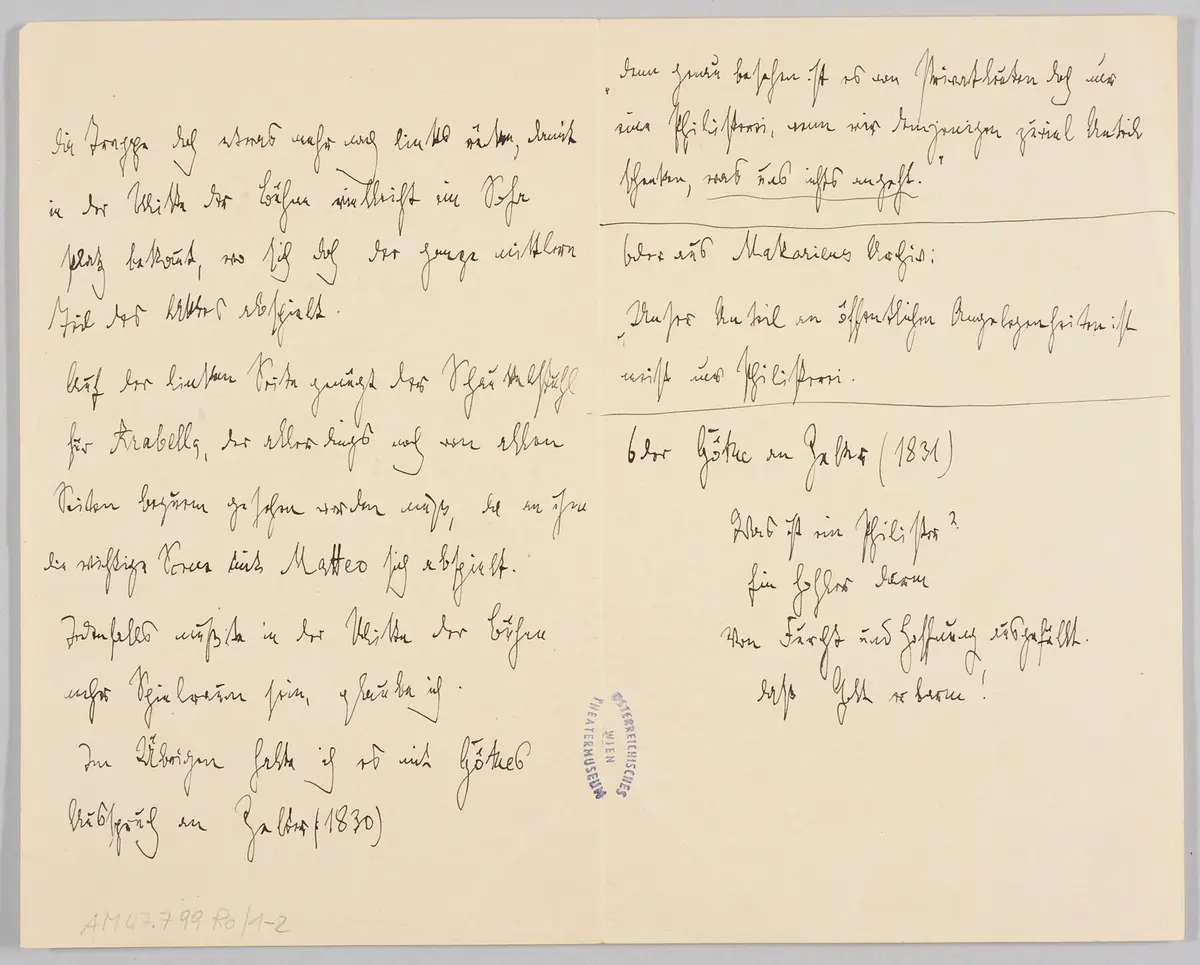 die Treppe doch etwas mehr nach links rücken, damit
in der Mitte der Bühne vielleicht ein Sofa
platz bekomt, wo sich doch der ganze mittlere
Teil des Aktes abspielt.
Auf der linken Seite genügt der Schaukelstuhl
für Arabella, der allerdings noch von allen
Seiten bequem gesehen werden muß, da an ihm
die wichtige Scene mit Matteo sich abspielt.
Jedenfalls müßte in der Mitte der Bühne
mehr Spielraum sein, glaube ich.
Im Übrigen halte ich es mit Göthes
Ausspruch an Zelter (1830)
„denn genau besehen ist es von Privatleuten doch nur
eine Philisterei, wenn wir demjenigen zuviel Anteil
schenken, was uns nichts angeht."
Oder aus Makariens Archiv:
„Unser Anteil an öffentlichen Angelegenheiten ist
meist nur Philisterei.
Oder Göthe an Zelter (1831)
Was ist ein Philister?
Ein hohler Darm
Von Furcht und Hoffnung ausgefüllt.
daß Gott erbarm!
ÖSTERREICHISCHES
WIEN
THEATERMUSEUM
AM 47.799 Ro/1-2